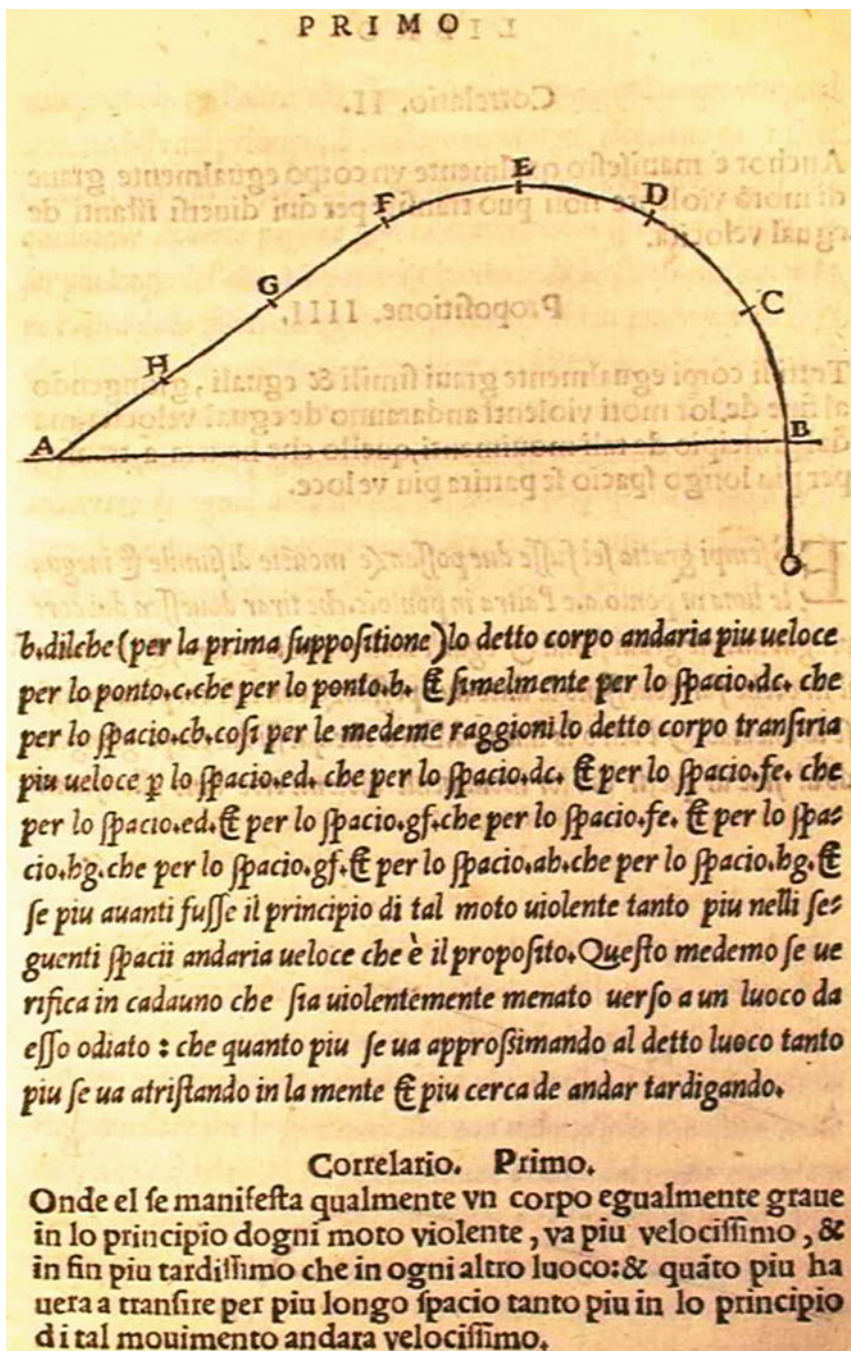 PRIMO
E
D
F
C
G
H
A
B
b.dilche (per la prima suppositione) lo detto corpo andaria piu ueloce
per lo ponto.c.che per lo ponto.b. & simelmente per lo spacio.dc. che
per lo spacio.cb.cosi per le medeme raggioni lo detto corpo transiria
piu ueloce ꝑ lo spacio.ed. che per lo spacio.dc. & per lo spacio.fe. che
per lo spacio.ed.& per lo spacio.gf.che per lo spacio.fe. & per lo spa=
cio.hg.che per lo spacio.gf.& per lo spacio.ah.che per lo spacio.hg.&
se piu auanti fusse il principio di tal moto uiolente tanto piu nelli se=
guenti spacii andaria ueloce che è il proposito.Questo medemo se ue
rifica in cadauno che sia uiolentemente menato uerso a un luoco da
esso odiato : che quanto piu se ua approssimando al detto luoco tanto
piu se ua atristando in la mente & piu cerca de andar tardigando.
Correlario. Primo.
Onde el se manifesta qualmente vn corpo egualmente graue
in lo principio dogni moto violente, va piu velocissimo, &
in fin piu tardissimo che in ogni altro luoco:& quãto piu ha
uera a transire per piu longo spacio tanto piu in lo principio
di tal mouimento andara velocissimo.